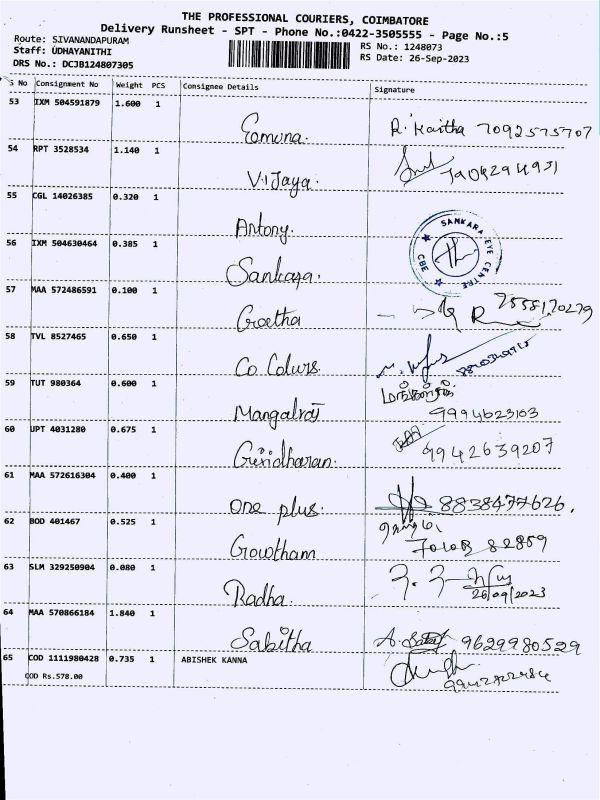 THE PROFESSIONAL COURIERS, COIMBATORE
Delivery Runsheet - SPT - Phone No.:0422-3505555 - Page No.:5
Route: SIVANANDAPURAM
RS No.: 1248073
Staff: UDHAYANITHI
RS Date: 26-Sep-2023
DRS No.: DCJB124807305
S No Consignment No Weight PCS Consignee Details Signature
53 IXM 504591879 1.600 1
R. Kavitha 7092575707
54 RPT 3528534 1.140 1
Vijaya.
55 CGL 14026385 0.320 1
Antony.
SANKARA EYE CENTRE CBE
56 IXM 504630464 0.385 1
Sankara.
57 MAA 572486591 0.100 1
Geetha
58 TVL 8527465 0.650 1
Co Colurs.
59 TUT 980364 0.600 1
Mangalraj 9994623103
60 UPT 4031280 0.675 1
Giridharan. 9942639207
61 MAA 572616304 0.400 1
One plus. 8838477626.
62 BOD 401467 0.525 1
Gowtham
63 SLM 329250904 0.080 1
Radha. 26/09/2023
64 MAA 570866184 1.840 1
Sabitha 9629980529
65 COD 1111980428 0.735 1 ABISHEK KANNA
COD Rs.578.00